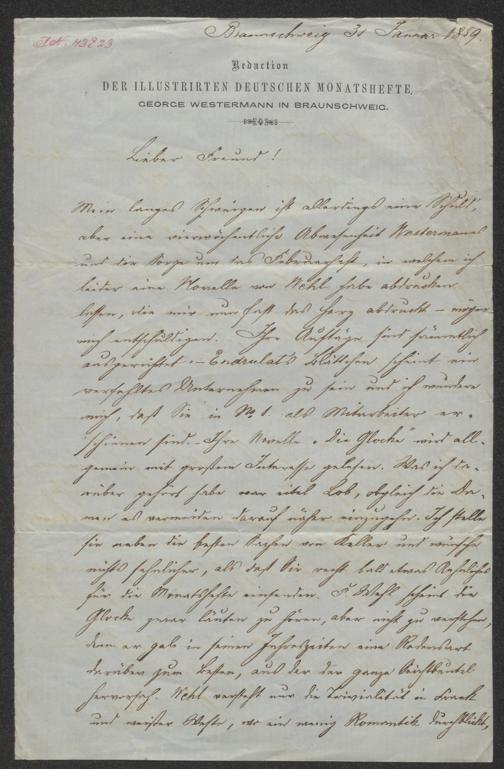 Braunschweig 31 Januar 1859.
Redaction
DER ILLUSTRIRTEN DEUTSCHEN MONATSHEFTE.
GEORGE WESTERMANN IN BRAUNSCHWEIG.
Lieber Freund!
Mein langes Schweigen ist allerdings eine Schuld,
aber eine vierwöchentliche Abwesenheit Westermanns
und die Sorge um das Februarheft, in welchem ich
leider eine Novelle von Wehl habe abdrucken
lassen, die mir nun fast das Herz abdrückt – mögen
mich entschuldigen. Ihre Aufträge sind sämmtlich
ausgerichtet. – Endrulat's Blättchen scheint ein
verfehltes Unternehmen zu sein und ich wundere
mich, daß Sie in No 1. als Mitarbeiter er-
schienen sind. – Ihre Novelle „Die Glocke" wird all-
gemein mit großem Interesse gelesen. Was ich da-
rüber gehört habe war eitel Lob, obgleich die Da-
men es vermeiden darauf näher einzugehen. Ich stelle
sie neben die besten Sachen von Keller und wünsche
nichts sehnlicher, als daß Sie recht bald etwas Aehnliches
für die Monatshefte einsenden. F. Wehl scheint die
Glocke zwar läuten zu hören, aber nicht zu verstehen,
denn er gab in seinen Jahreszeiten eine Redensart
darüber zum Besten, aus der der ganze
hervorsah. Wehl versteht nur die Trivialität in Frack
und weißer Weste, wo ein wenig Romantik durchblickt,